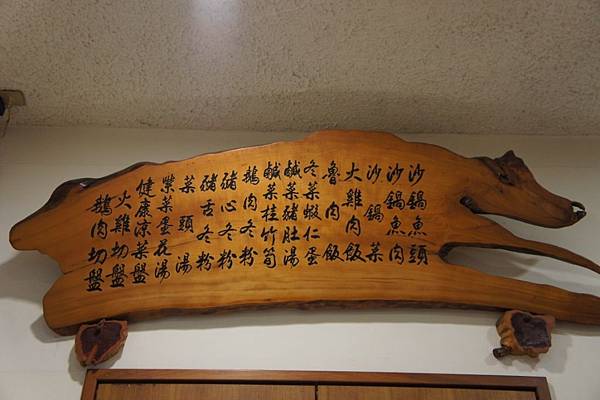 沙鍋魚頭
沙鍋魚肉
沙鍋菜
火雞肉飯
魯肉飯
冬菜蝦仁蛋
鹹菜豬肚湯
鹹菜桂竹筍
鵝肉冬粉
豬心冬粉
豬舌冬粉
菜頭湯
紫菜蛋花湯
健康涼菜盤
火雞切盤
鵝肉切盤